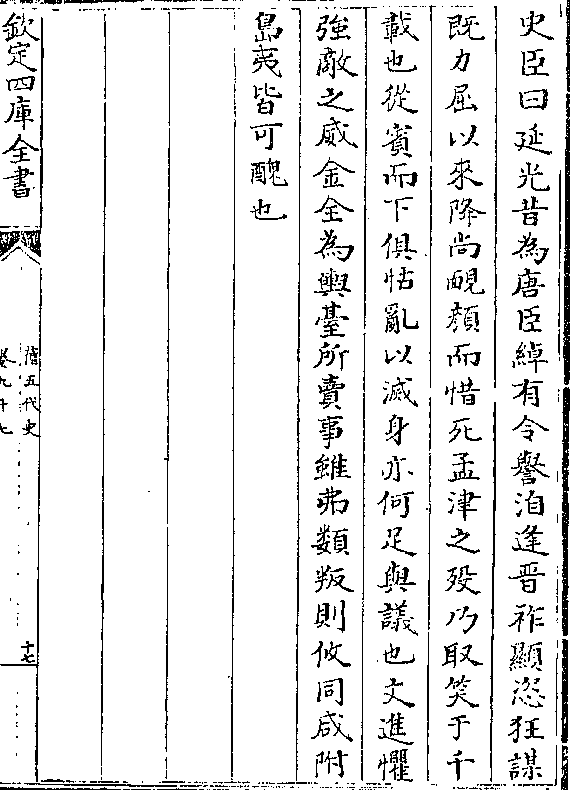 史臣曰延光昔為唐臣綽有令譽洎逢晋祚顯恣狂謀
既力屈以來降尚靦顔而惜死孟津之殁乃取笑于千
載也從賓而下俱怙亂以滅身亦何足與議也文進懼
強敵之威金全為輿臺所賣事雖弗類叛則攸同咸附
島夷皆可醜也
欽定四庫全書
舊五代史
卷九十七
十七